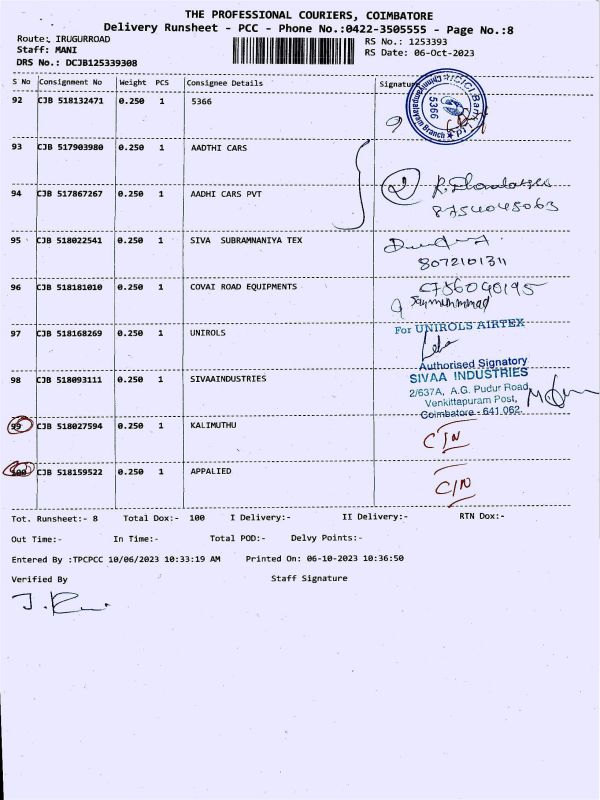 THE PROFESSIONAL COURIERS, COIMBATORE
Delivery Runsheet - PCC - Phone No.:0422-3505555 - Page No.:8
Route: IRUGURROAD
RS No.: 1253393
Staff: MANI
RS Date: 06-Oct-2023
DRS No.: DCJB125339308
S No Consignment No Weight PCS Consignee Details Signature
92 CJB 518132471 0.250 1 5366
ICICI Bank Ltd
5366
Branch
93 CJB 517903980 0.250 1 AADTHI CARS
94 CJB 517867267 0.250 1 AADHI CARS PVT
2
8754045063
95 CJB 518022541 0.250 1 SIVA SUBRAMNANIYA TEX
8072101311
96 CJB 518181010 0.250 1 COVAI ROAD EQUIPMENTS
97 CJB 518168269 0.250 1 UNIROLS
For UNIROLS AIRTEX
Authorised Signatory
98 CJB 518093111 0.250 1 SIVAAINDUSTRIES
SIVAA INDUSTRIES
2/637A, A.G. Pudur Road,
Venkittapuram Post,
Coimbatore - 641 062.
99 CJB 518027594 0.250 1 KALIMUTHU
C/N
100 CJB 518159522 0.250 1 APPALIED
C/N
Tot. Runsheet:- 8 Total Dox:- 100 I Delivery:- II Delivery:- RTN Dox:-
Out Time:- In Time:- Total POD:- Delvy Points:-
Entered By :TPCPCC 10/06/2023 10:33:19 AM Printed On: 06-10-2023 10:36:50
Verified By Staff Signature